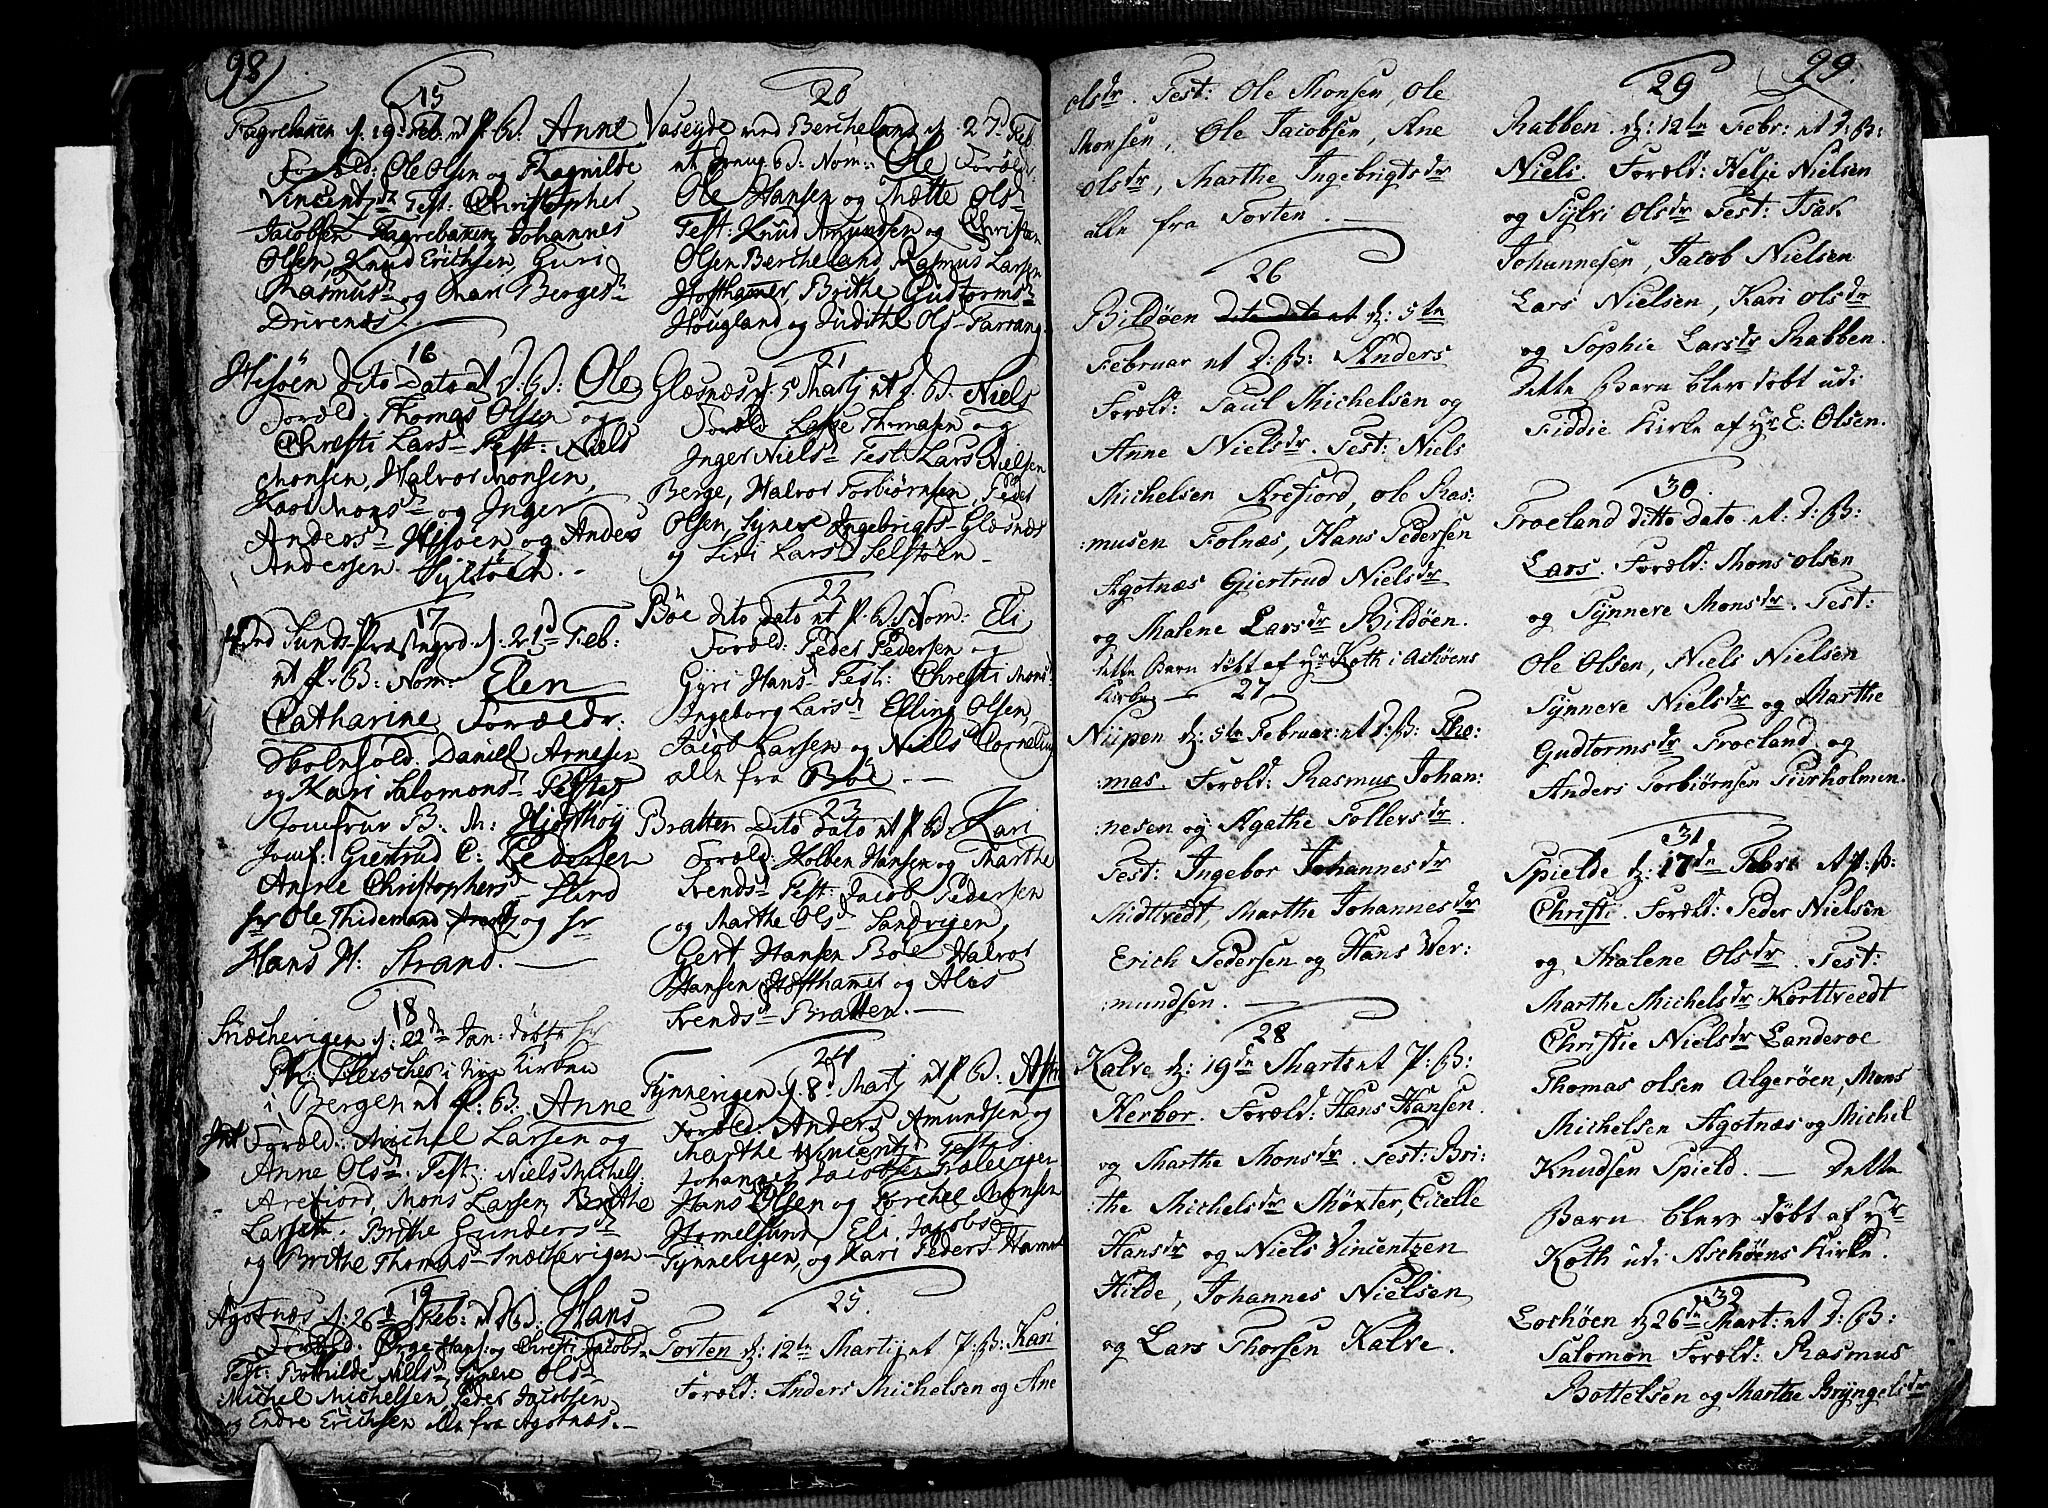 98)
15
Fagrebaken d. 19d Feb. nt P. B. Anne
Foræld: Ole Olsen og Ragnilde
Vincentsdr Test: Christopher
Jacobsen Fagrebaken, Johannes
Olsen, Knud Erichsen, Guri
Rasmusdr og Mari Bergesdr
Drivenæs.
16
Hisøen dito Dato nt P. B: Ole
Foræld: Thomas Olsen og
Christi Larsd Test: Niels
Monsen, Halvor Monsen,
Kari Monsd og Inger
Andersd Hisøen og Anders
Andersen Syltøen. -
17
Sunds Præstegrd d. 21d Feb:
nt P. B: Nom: Elen
Catharine Forældr:
Skolehold. Daniel Arnesen
og Kari Salomonsd Testes
Jomfrur B. M: Hjorthøy
Jomf: Giertrud C: Pedersen
Anne Christophersd Lird
hr Ole Thidemand og hr
Hans H: Strand. —
18
Snæchevigen d: 22dn Jan: døbt hr
Fleischer i Nye Kirken
i Bergen nt P: B. Anne
Foræld: Michel Larsen og
Anne Olsd. Test: Niels Michels:
Arefiord, Mons Larsen, Brithe
Larsdtr. Brithe Gundersd
og Brithe Thomasd Snæchevigen —
19
Agotnæs d: 26d Feb: nt P. B. Hans
Foræld: Ørge Hans: og Christi Jacobsd
Test: Bothilde Nilsd Synere Olsd
Michel Michelsen, Peder Jacobsen
og Endre Erichsen alle fra Agotnæs. —
20
Vaseyde ved Bercheland d 27d Feb.
nt P. B: Nom: Ole Foræld:
Ole Hansen og Mætte Olsd
Test: Knud Amundsen og Christen
Olsen Bercheland, Rasmus Larsen
Hofthamer, Brithe Gudtormsd
Hougland og Judithe Olsd Tarrang.
21
Glæsnæs d 5 Martj nt P. B. Niels
Foræld Lasse Thomasen og
Inger Nielsd Test: Lars Nielsen
Berge, Halvor Torbiørnsen, Peder
Olsen, Synere Ingebrigtsd Glæsnæs
og Siri Larsd Telstøen —
22
Bøe dito dato nt P. B. Nom: Eli
Foræld: Peder Pedersen og
Gyri Hansd Test: Christi Monsd
Ingeborg Larsd Elling Olsen,
Jacob Larsen og Niels Cornelius
alle fra Bøe. —
23
Bratten Dito Dato nt P B. Kari
Foræld: Kolben Hansen og Marthe
Svendsd Test: Jacob Pedersen
og Marthe Olsd Sandvigen,
Gert Hansen Bøe Halvor
Hansen Hofthamer og Alis
Svendsd Bratten. —
24
Tynnevigen d. 8d Martj nt P. B.
Foræld. Anders Amundsen og
Marthe Vincentsd Testes
Johannes Jacobsen
Hans Olsen og Torchel Monsen
Homelsund, Eli Jacobsd
Tynnevigen, og Kari Pedersd
25.
Torten d: 12tn Martij nt P: B: Kari
Foræld: Anders Michelsen og Ane
olsdr. Test: Ole Monsen, Ole
Monsen, Ole Jacobsen, Ane
olsdr, Marthe Ingebrigtsdr
alle fra Torten. —
26
Bildøen dito dato nt d: 5tn
Februar nt D: B: Anders
Foræld: Paul Michelsen og
Anne Nielsdr. Test: Niels
Michelsen Arefiord, ole Ras:
:musen Folnæs, Hans Pedersen
Agotnæs Giertrud Nielsdr
og Malene Larsdr Bildøen.
dette Barn døbt af Hr Koth i Aschøens
Kirke —
27
Nipen d: 5te Februar: nt D: B: Tho:
:mas. Foræld: Rasmus Johan:
:nesen og Agathe Tollevsdr.
Test: Ingebor Johannesdr
Midttvedt, Marthe Johannesdr
Erich Pedersen og Hans Ver:
:mundsen. —
28
Kalve d: 19de Marts nt P: B:
Herbor. Foræld: Hans Hansen.
og Marthe Monsdr. Test: Bri:
:the Michelsdr Møxter, Cicelle
Hansdr og Niels Vincentzen
Hilde, Johannes Nielsen
og Lars Thorsen Kalve.
99.
29
Rabben. d: 12tn Febr: nt D: B:
Niels. Foræld: Helje Nielsen
og Sylvi Olsdr Test: Isak
Johannesen, Jacob Nielsen
Lars Nielsen, Kari olsdr
og Sophie Larsdr Rabben.
Dette Barn blev døbt udi
Fiddie Kirke af Hr E: Olsen.
30.
Troeland ditto dato. nt: D: B:
Lars. Foræld: Mons olsen
og Synnere Monsdr. Test:
Ole Olsen, Niels Nielsen
Synnere Nielsdr og Marthe
Gudtormsdr Troeland og
Anders Torbiørnsen Tierholmen.
31
Spielde d: 17dn Febr: nt P: B:
Christi. Foræld: Peder Nielsen
og Malene Olsdr. Test:
Marthe Michelsdr Korttveedt
Christie Nielsdr Landeroe
Thomas olsen Algerøen, Mons
Michelsen Agotnæs og Michel
Knudsen Spield. — Dette
Barn blev døbt af Hr
Koth udi Aschøens Kirke.
32
Lochøen d 26dn Mart: nt D: B:
Salomon Foræld: Rasmus
Bottelsen og Marthe Bryngelsdr